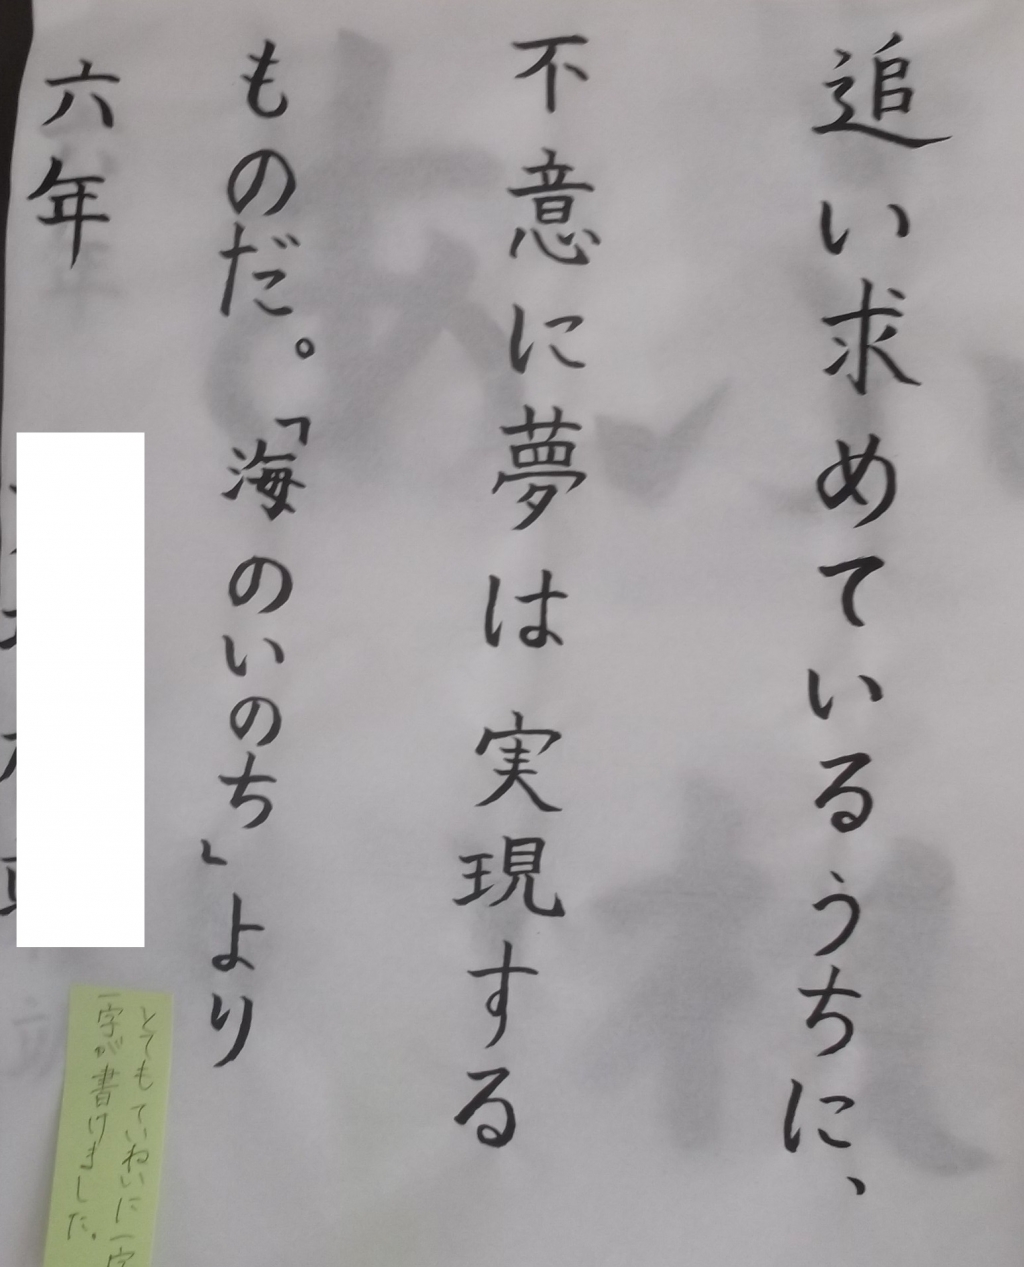 追い求めているうちに、
不意に夢は実現する
ものだ。「海のいのち」より
六年
とてもていねいに一字
一字が書けました。